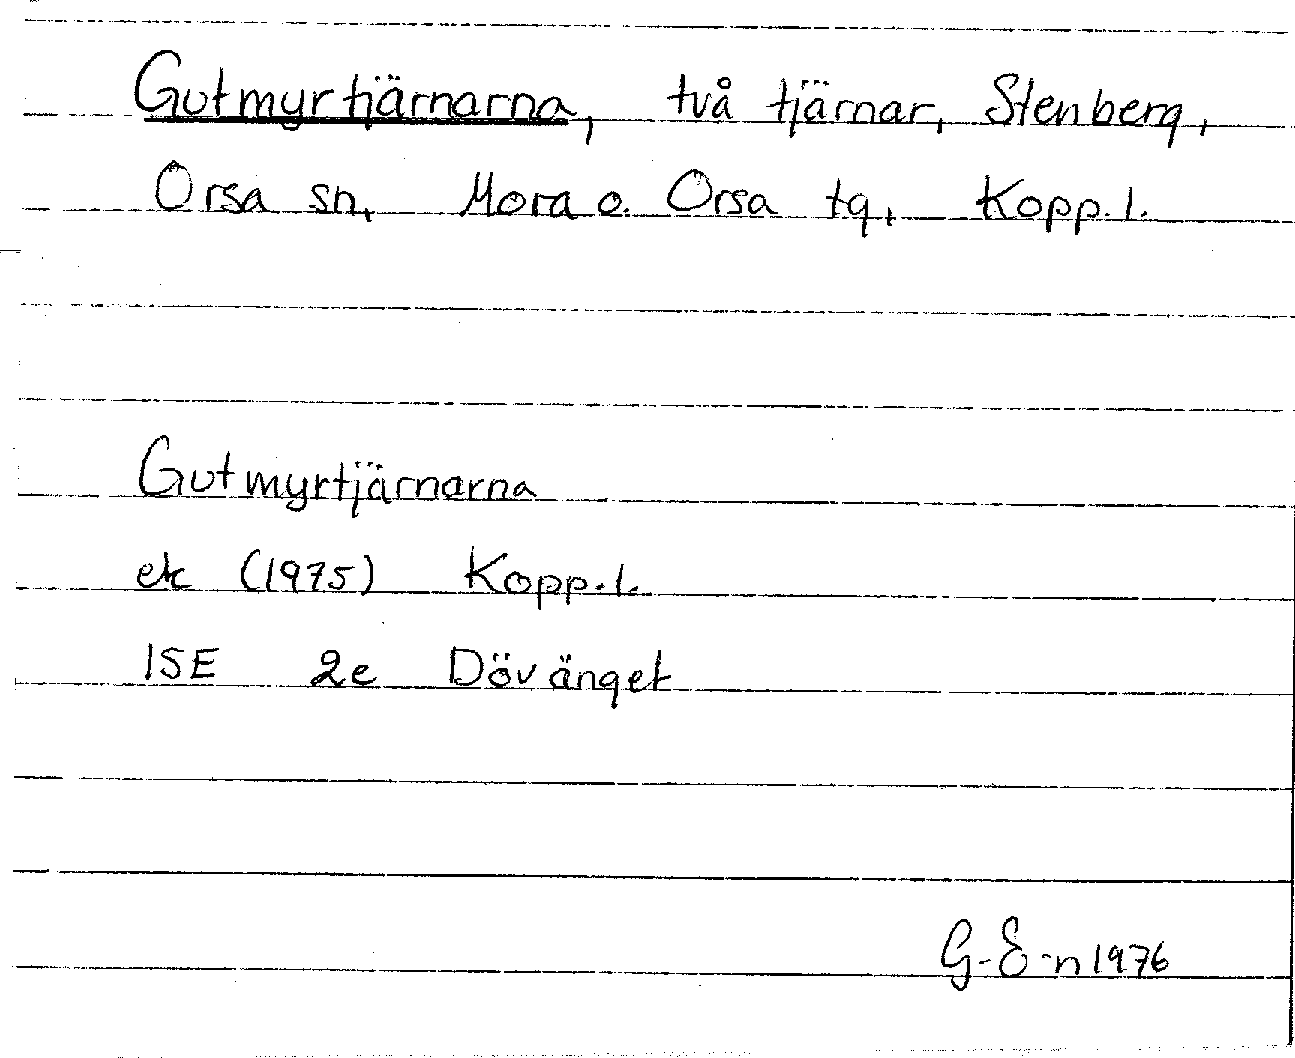 Gutmyrtjärnarna, två tjärnar, Stenberg,
Orsa sn, Mora o. Orsa tg, Kopp. l.
Gutmyrtjärnarna
ek (1975) Kopp. l.
15E 2e Dövänget
G-E-n 1976